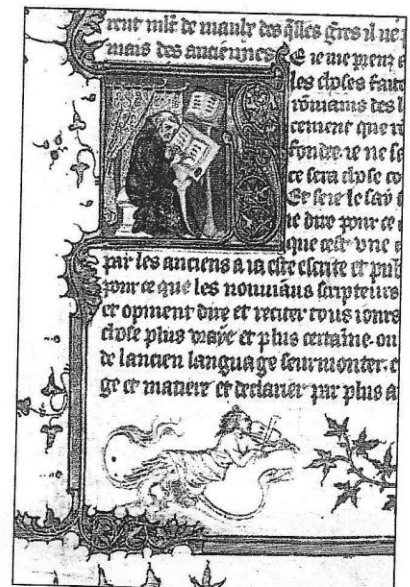 rent mlt de maulx des q̃lles gres il ne
mais des anciennes E ie me prenz a
les choses faite
rōmains des l
cement que
fondee ie ne s
ce sera chose co
Et se ie le say
ie dire pour ce
que cest vne
par les anciens a ia este escrite et pub
pour ce que les nouuiaus scripteurs
et opinent dire et reciter tous iours
chose plus vraye et plus certaine. ou
de lancien language seurmonter.
ge et matiere et declairier par plus a